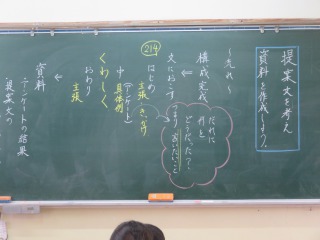 提案文を考え
資料を作成しよう。
〜流れ〜
構成完成
←
文におこす
214
はじめ
主張
きっかけ
中
具体例
(アンケート)
くわしく
おわり
主張
←
資料
アンケートの結果
提案文の
だれに
何を
どうだった?
つまり言いたいこと